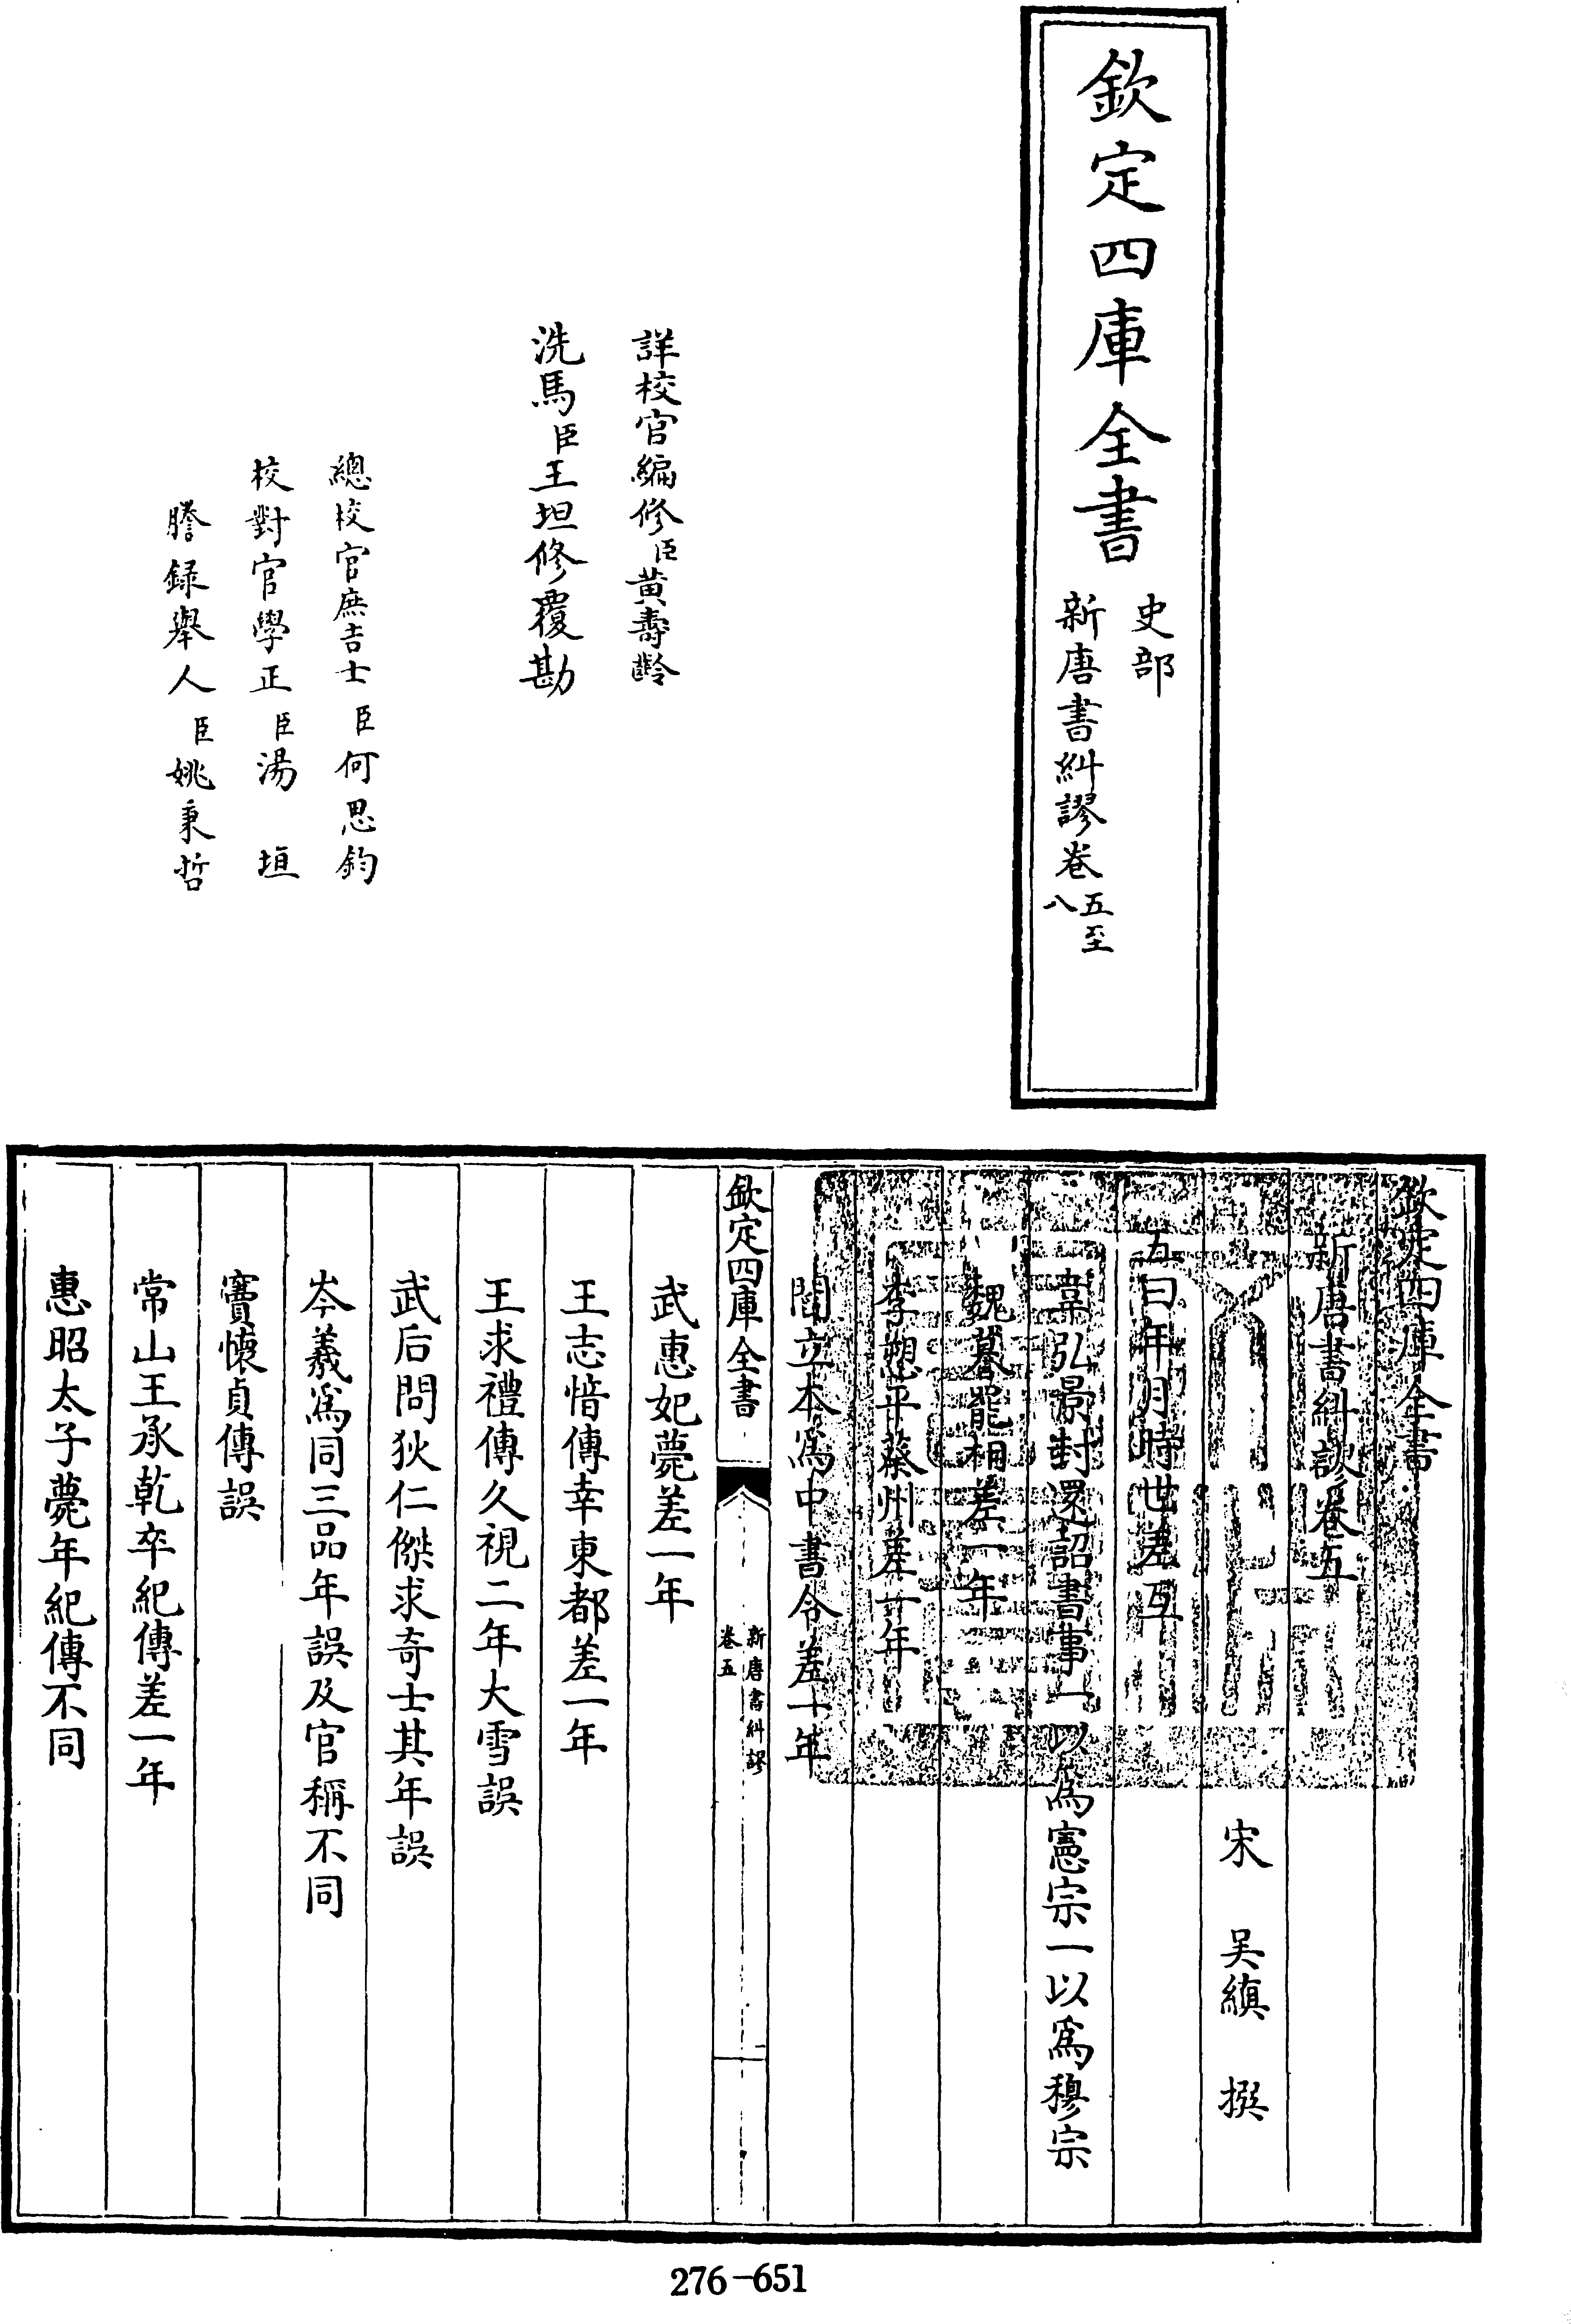 欽定四庫全書
史部
新唐書糾謬卷五至八
詳校官編修臣黃壽齡
洗馬臣王坦修覆勘
總校官庶吉士臣何思鈞
校對官學正臣湯垣
謄錄舉人臣姚秉哲
欽定四庫全書
新唐書糾謬卷五
宋 吳縝 撰
五曰年月時世差互
韋弘景封還詔書事一以為憲宗一以為穆宗
魏謩罷相差一年
李愬平蔡州差一年
閻立本為中書令差十年
欽定四庫全書
新唐書糾謬
卷五
一
武惠妃薨差一年
王志愔傳幸東都差一年
王求禮傳久視二年大雪誤
武后問狄仁傑求奇士其年誤
岑羲為同三品年誤及官稱不同
竇懷貞傳誤
常山王承乾卒紀傳差一年
惠昭太子薨年紀傳不同
276-651